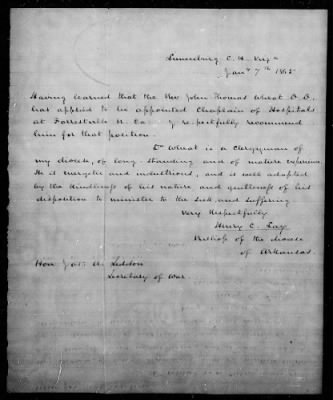 Lunenburg C. H. Virga
Jany 7th 1865
Having learned that the Rev John Thomas Wheat D. D.
has applied to be appointed Chaplain of Hospitals
at N. Ca. I respectfully recommend
him for that position.
Dr Wheat is a clergyman of
my diocese, of long standing and of mature experience
He is energetic and industrious, and is well adapted
by the kindliness of his nature and gentleness of his
disposition to minister to the sick and suffering
Very Respectfully
Henry C. Lay
Bishop of the diocese
of Arkansas.
Hon Jas. A. Seddon
Secretary of War